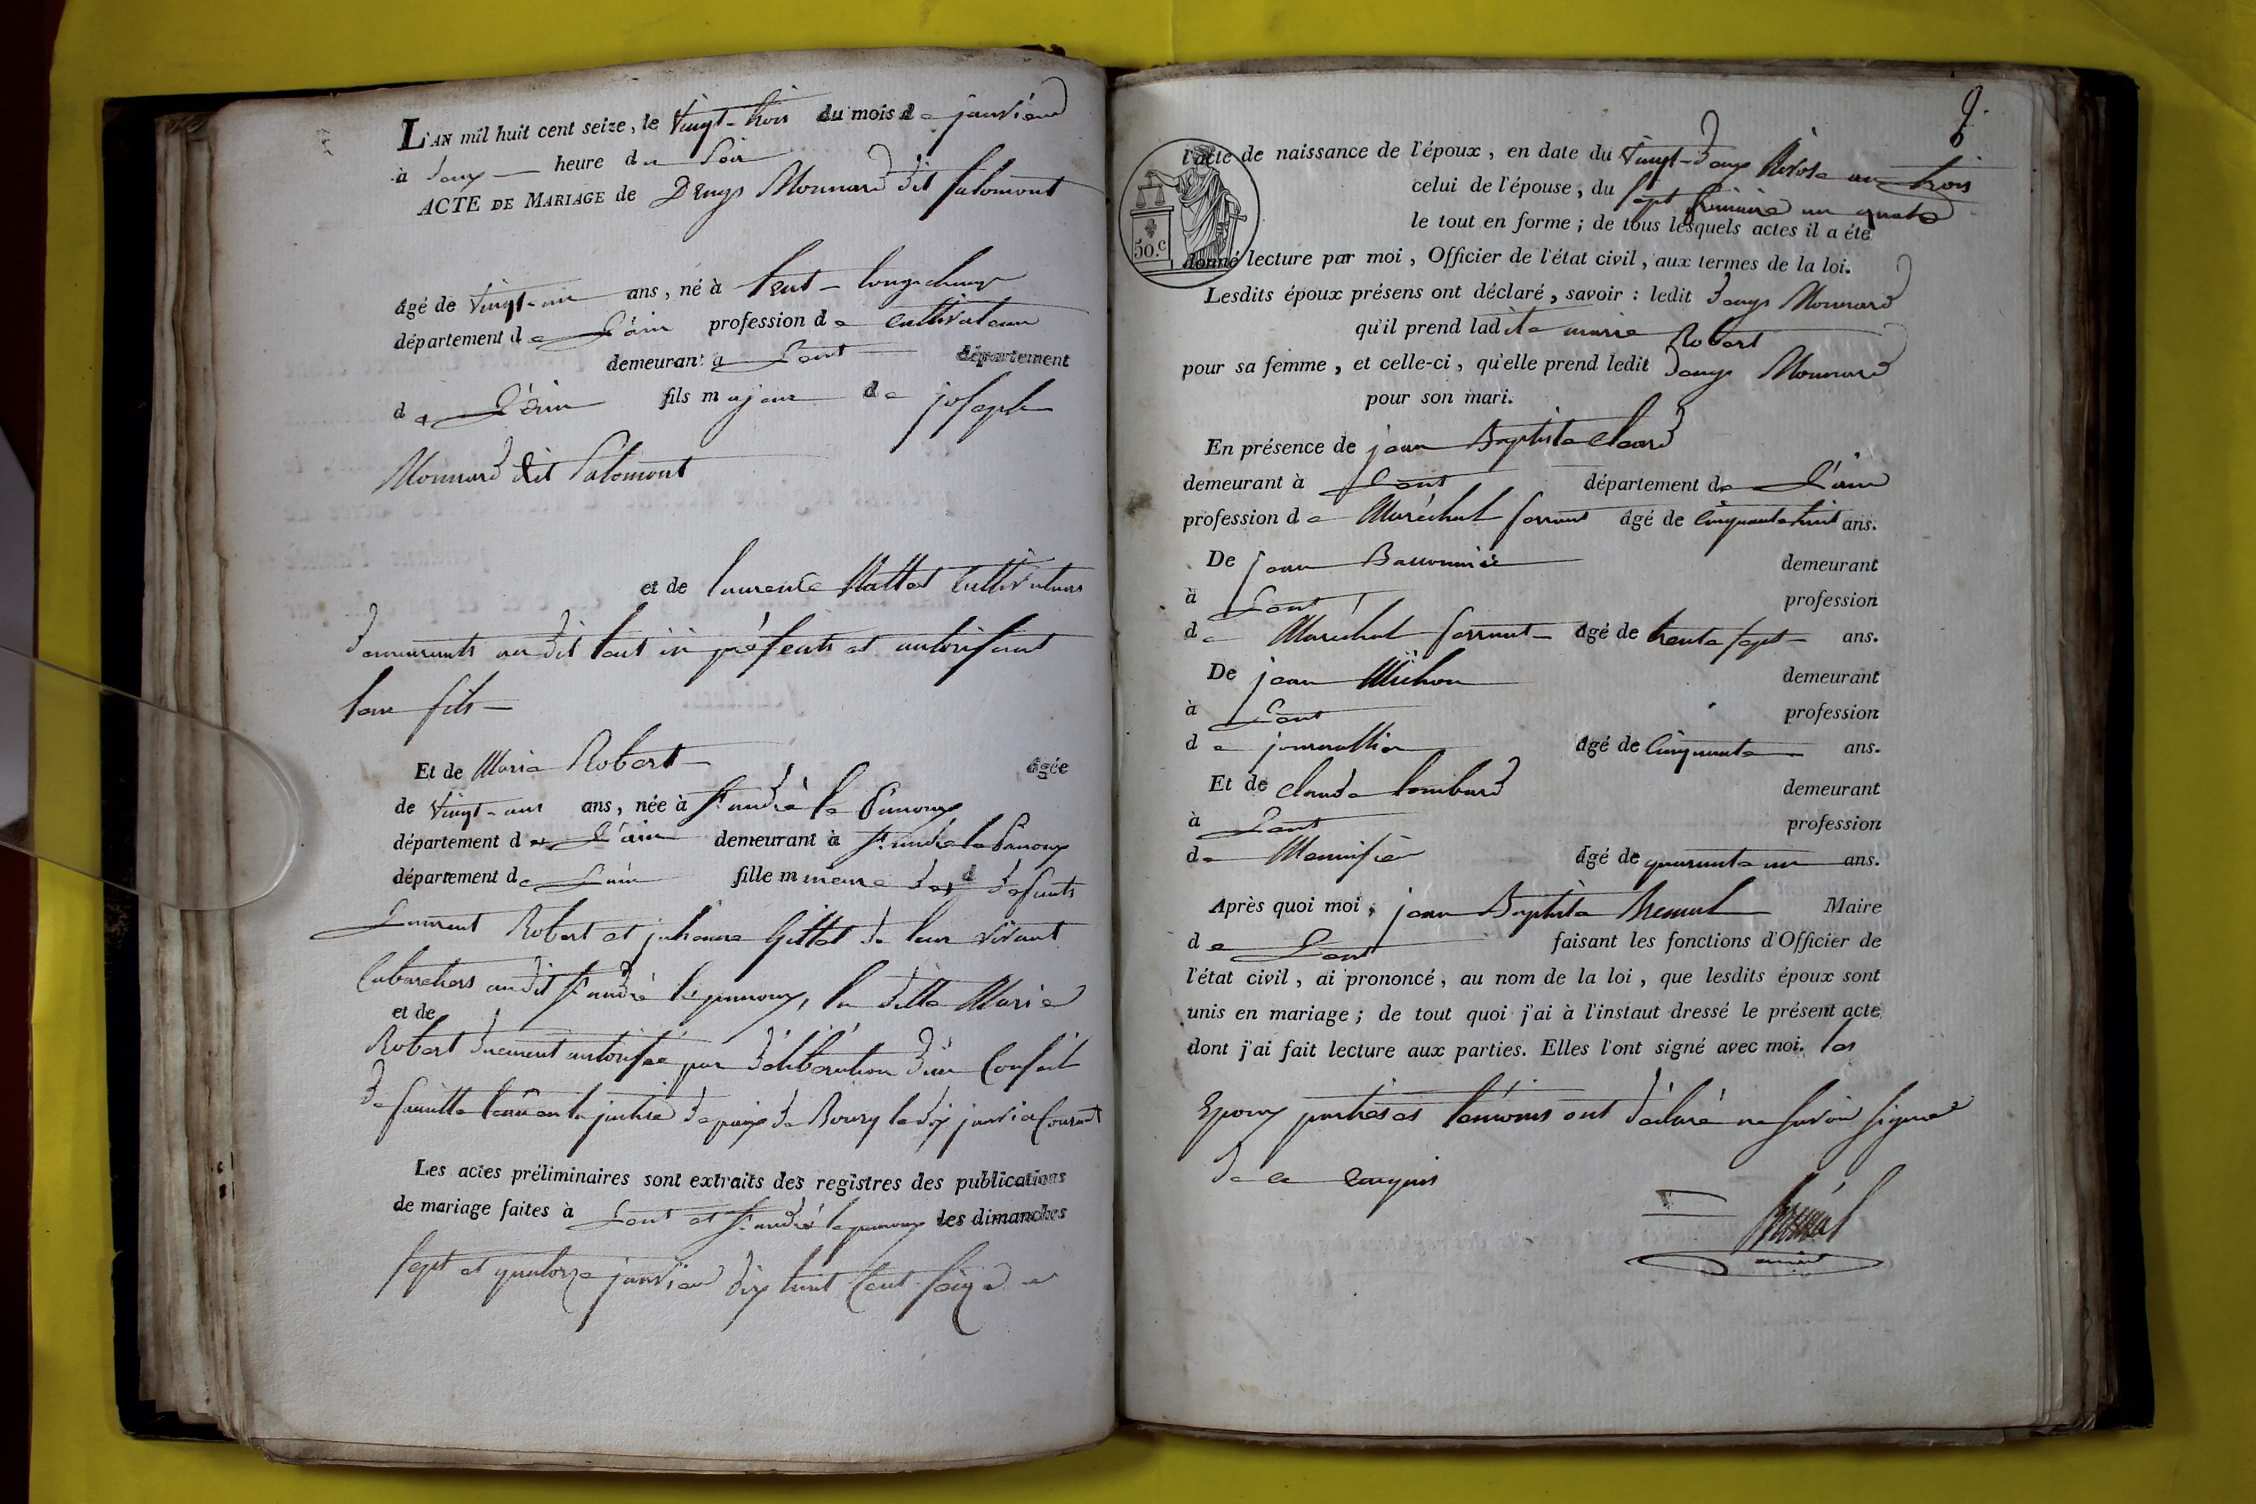 L'AN mil huit cent seize, le vingt-trois du mois de janvier
à deux heure du soir
ACTE DE MARIAGE de Denys Monnard dit Salomont
âgé de vingt-un ans, né à Lent - longchamp
département de L'ain profession de cultivateur
demeurant à Lent département
de L'ain fils majeur de joseph
Monnard dit Salomont
et de laurence Mattet cultivateurs
demeurants au dit Lent ici présents et autorisant
leur fils
Et de Marie Robert âgée
de vingt-ans ans, née à St. andré le Panoux
département de L'ain demeurant à St. andré le Panoux
département de L'ain fille mineure des d défunts
Laurent Robert et julienne Gillet de leur vivant
Cabaretiers au dit St. andré le panoux, la ditte Marie
et de
Robert duement autorisée par déliberation d'un Conseil
de famille tenu en la justice de paix de Bourg le dix janvier Courant
Les actes préliminaires sont extraits des registres des publications
de mariage faites à Lent et St. andré le panoux les dimanches
sept et quatorze janvier dix huit Cent seize
9.
l'acte de naissance de l'époux, en date du vingt-deux Nivose an trois
celui de l'épouse, du sept frimaire an quatre
le tout en forme; de tous lesquels actes il a été
50.c
donné lecture par moi, Officier de l'état civil, aux termes de la loi.
Lesdits époux présens ont déclaré, savoir: ledit Denys Monnard
qu'il prend ladite marie Robert
pour sa femme, et celle-ci, qu'elle prend ledit Denys Monnard
pour son mari.
En présence de jean Baptiste Cleard
demeurant à Lent département de L'ain
profession de Maréchal ferrant âgé de Cinquante huit ans.
De jean demeurant
à Lent profession
de Maréchal ferrant âgé de trente sept ans.
De jean Michon demeurant
à Lent profession
de journallier âgé de Cinquante ans.
Et de Claude Lombard demeurant
à Lent profession
de Menuisier âgé de quarante un ans.
Après quoi moi, jean Baptiste Maire
de Lent faisant les fonctions d'Officier de
l'état civil, ai prononcé, au nom de la loi, que lesdits époux sont
unis en mariage; de tout quoi j'ai à l'instaut dressé le présent acte
dont j'ai fait lecture aux parties. Elles l'ont signé avec moi. les
Epoux parties et temoins ont déclaré ne savoir signer
de ce enquis